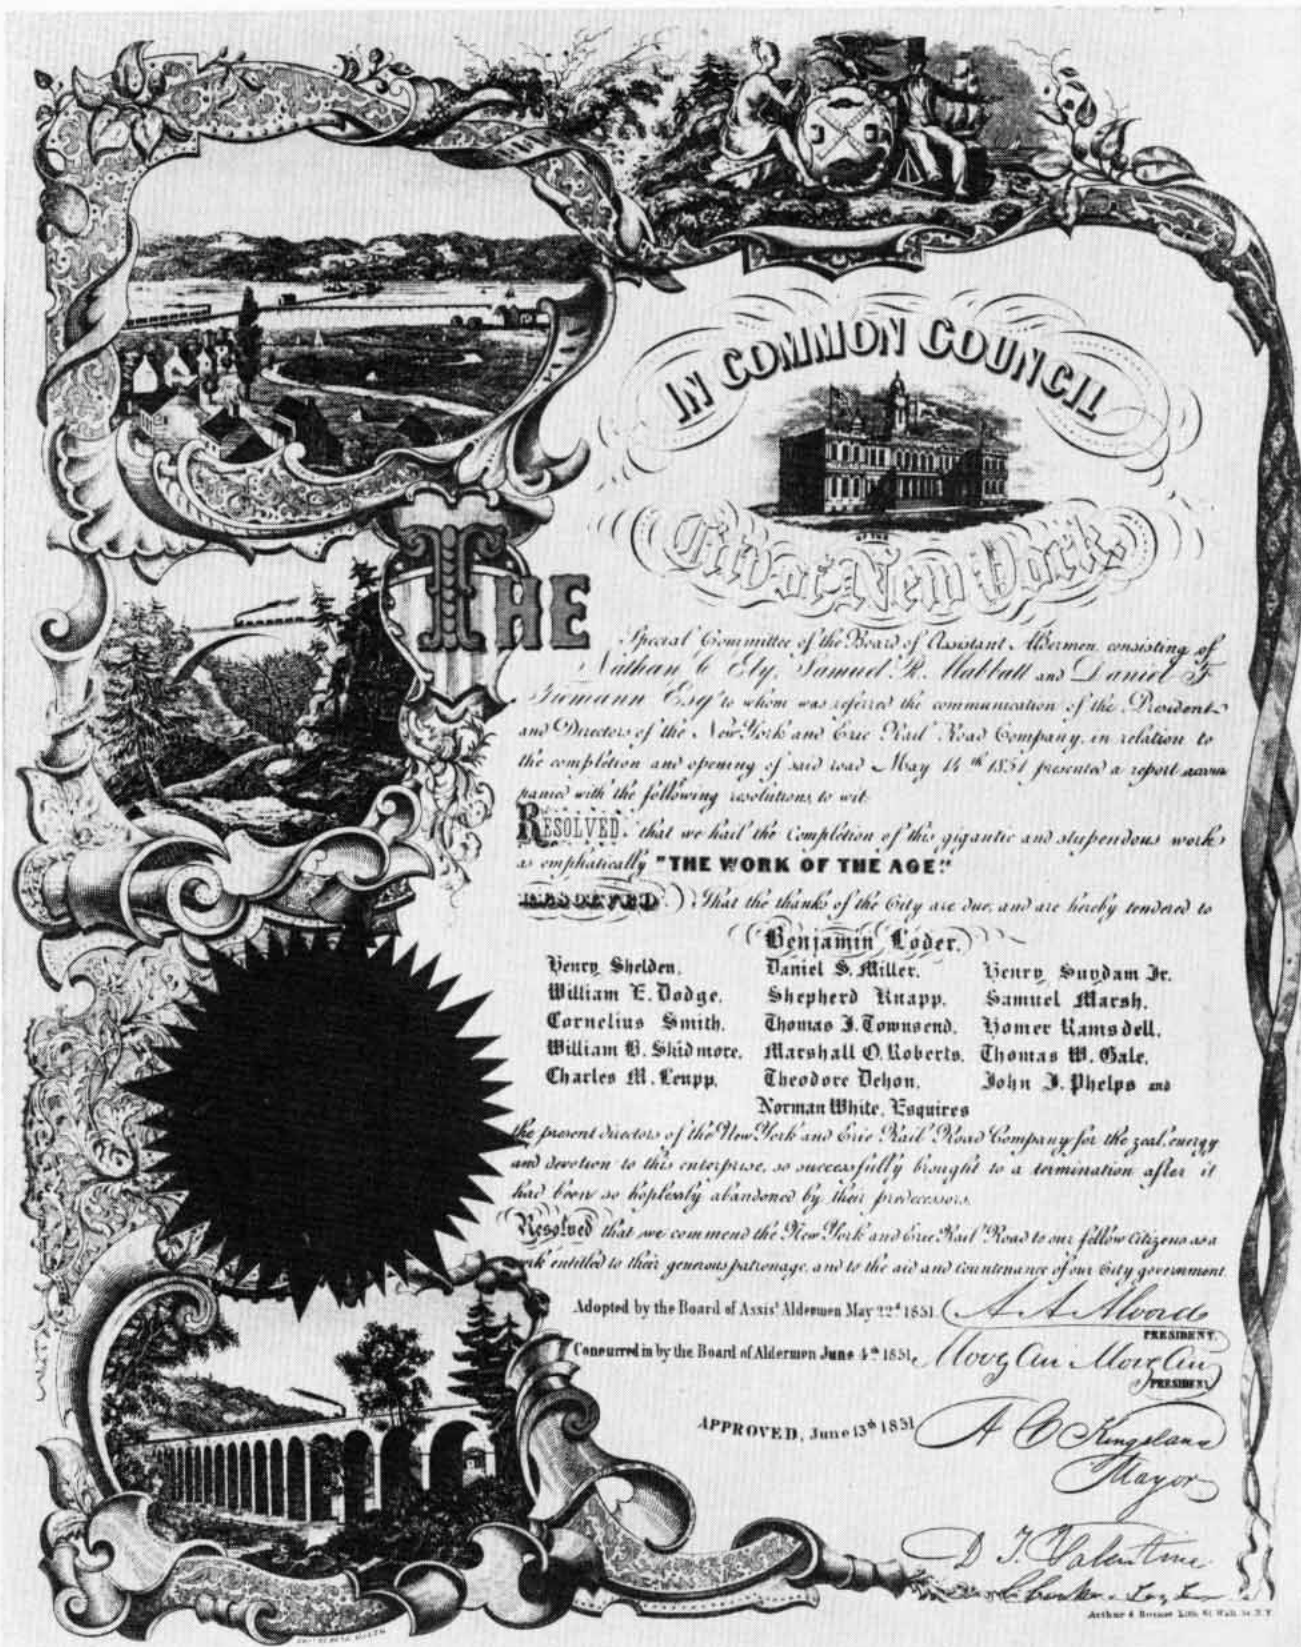 IN COMMON COUNCIL
OF THE
City of New York.
THE
Special Committee of the Board of Assistant Aldermen, consisting of
Nathan C Ely, Samuel R. Mabbatt and Daniel F
Tiemann Esqrs to whom was referred the communication of the President
and Directors of the New York and Erie Rail Road Company, in relation to
the completion and opening of said road May 14th 1851 presented a report accom
panied with the following resolutions, to wit.
RESOLVED. that we hail the completion of this gigantic and stupendous work
as emphatically "THE WORK OF THE AGE."
RESOLVED. That the thanks of the City are due, and are hereby tendered to
Benjamin Loder.
Henry Shelden. Daniel S. Miller. Henry Suydam Jr.
William E. Dodge. Shepherd Knapp. Samuel Marsh.
Cornelius Smith. Thomas J. Townsend. Homer Ramsdell.
William B. Skidmore. Marshall O. Roberts. Thomas W. Gale.
Charles M. Leupp. Theodore Dehon. John J. Phelps and
Norman White, Esquires
the present directors of the New York and Erie Rail Road Company for the zeal, energy
and devotion to this enterprise, so successfully brought to a termination after it
had been so hoplessly abandoned by their predecessors.
Resolved that we commend the New York and Erie Rail Road to our fellow Citizens as a
work entitled to their generous patronage, and to the aid and countenance of our City government.
Adopted by the Board of Assist Aldermen May 22d 1851. A A Alvord
PRESIDENT.
Concurred in by the Board of Aldermen June 4th 1851. Morgan Morgan
PRESIDENT.
APPROVED, June 13th 1851 A C Kingsland
Mayor
D T. Valentine
Lith. 61 Wall St. N.Y.